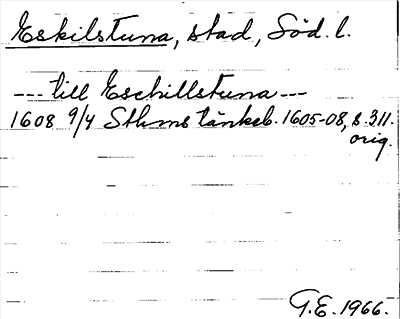 Eskilstuna, stad, Söd. l.
--- till Eschillstuna ---
1608 9/4 Sthms tänkeb. 1605-08, s. 311.
orig.
G.E. 1966.